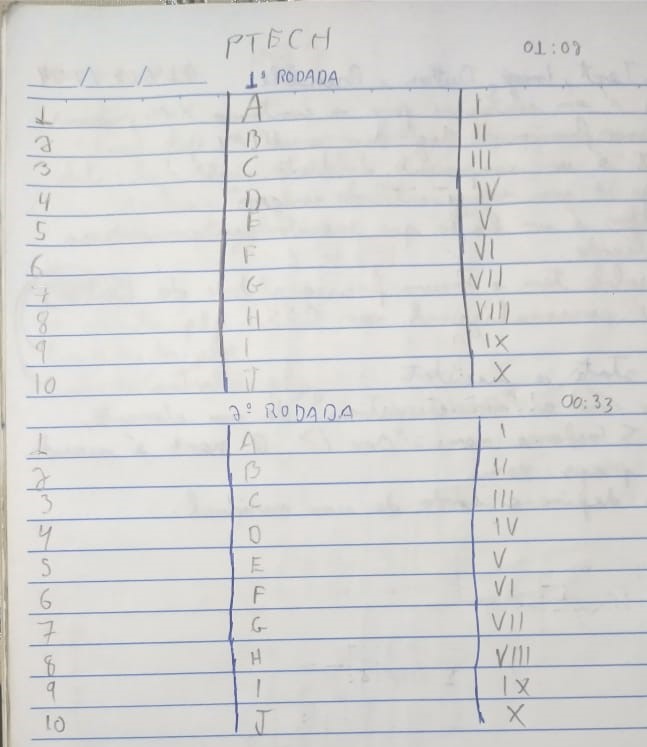 PTECH 01:08
__/__/__ 1ª RODADA
1 A I
2 B II
3 C III
4 D IV
5 E V
6 F VI
7 G VII
8 H VIII
9 I IX
10 J X
2ª RODADA 00:33
1 A I
2 B II
3 C III
4 D IV
5 E V
6 F VI
7 G VII
8 H VIII
9 I IX
10 J X